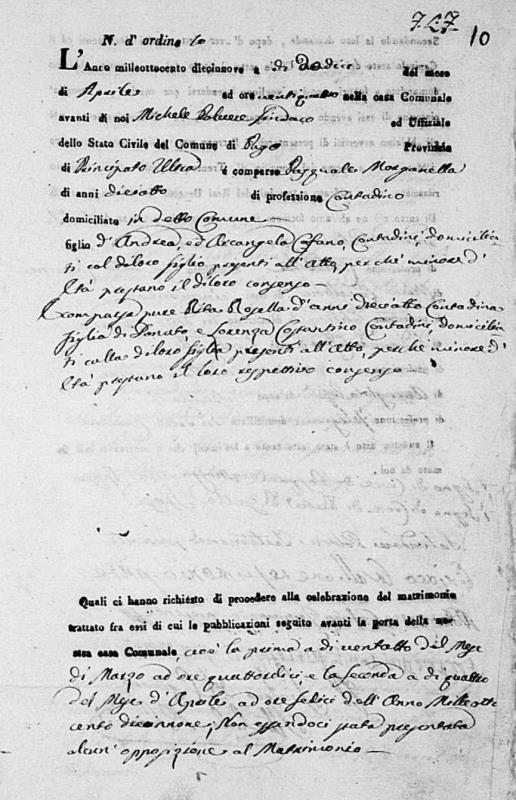 7.L.7
10
N. d' ordine 10
L' Anno milleottocento diecinnove a dì dodici del mese
di Aprile ad ore ventiquattro nella casa Comunale
avanti di noi Michele Polvere Sindaco ed Uffiziale
dello Stato Civile del Comune di Pago Provincia
di Principato Ultra è comparso Pasquale Morganella
di anni dieciotto di professione Contadino
domiciliato in detto Comune
figlio d' Andrea, ed Arcangela Cofano, Contadini, domicilia
ti col di loro figlio presenti all' Atto, perchè minore d'
Età prestano il di loro consenso
Comparsa pure Rita Rosella d' anni dieciotto Contadina
figlia di Donato, e Lorenza Costantino Contadini, domicilia
ti colla di loro figlia presenti all' Atto, perchè minore d'
Età prestano il loro rispettivo consenso
Quali ci hanno richiesto di procedere alla celebrazione del matrimonio
trattato fra essi di cui le pubblicazioni seguito avanti la porta della no-
stra casa Comunale, cioè la prima a dì ventotto del Mese
di Marzo ad ore quattordici, e la seconda a dì quattro
del Mese d' Aprile ad ore sedici dell' Anno Mille otto
cento diecinnove; Non essendoci stata presentata
alcun' opposizione al Matrimonio